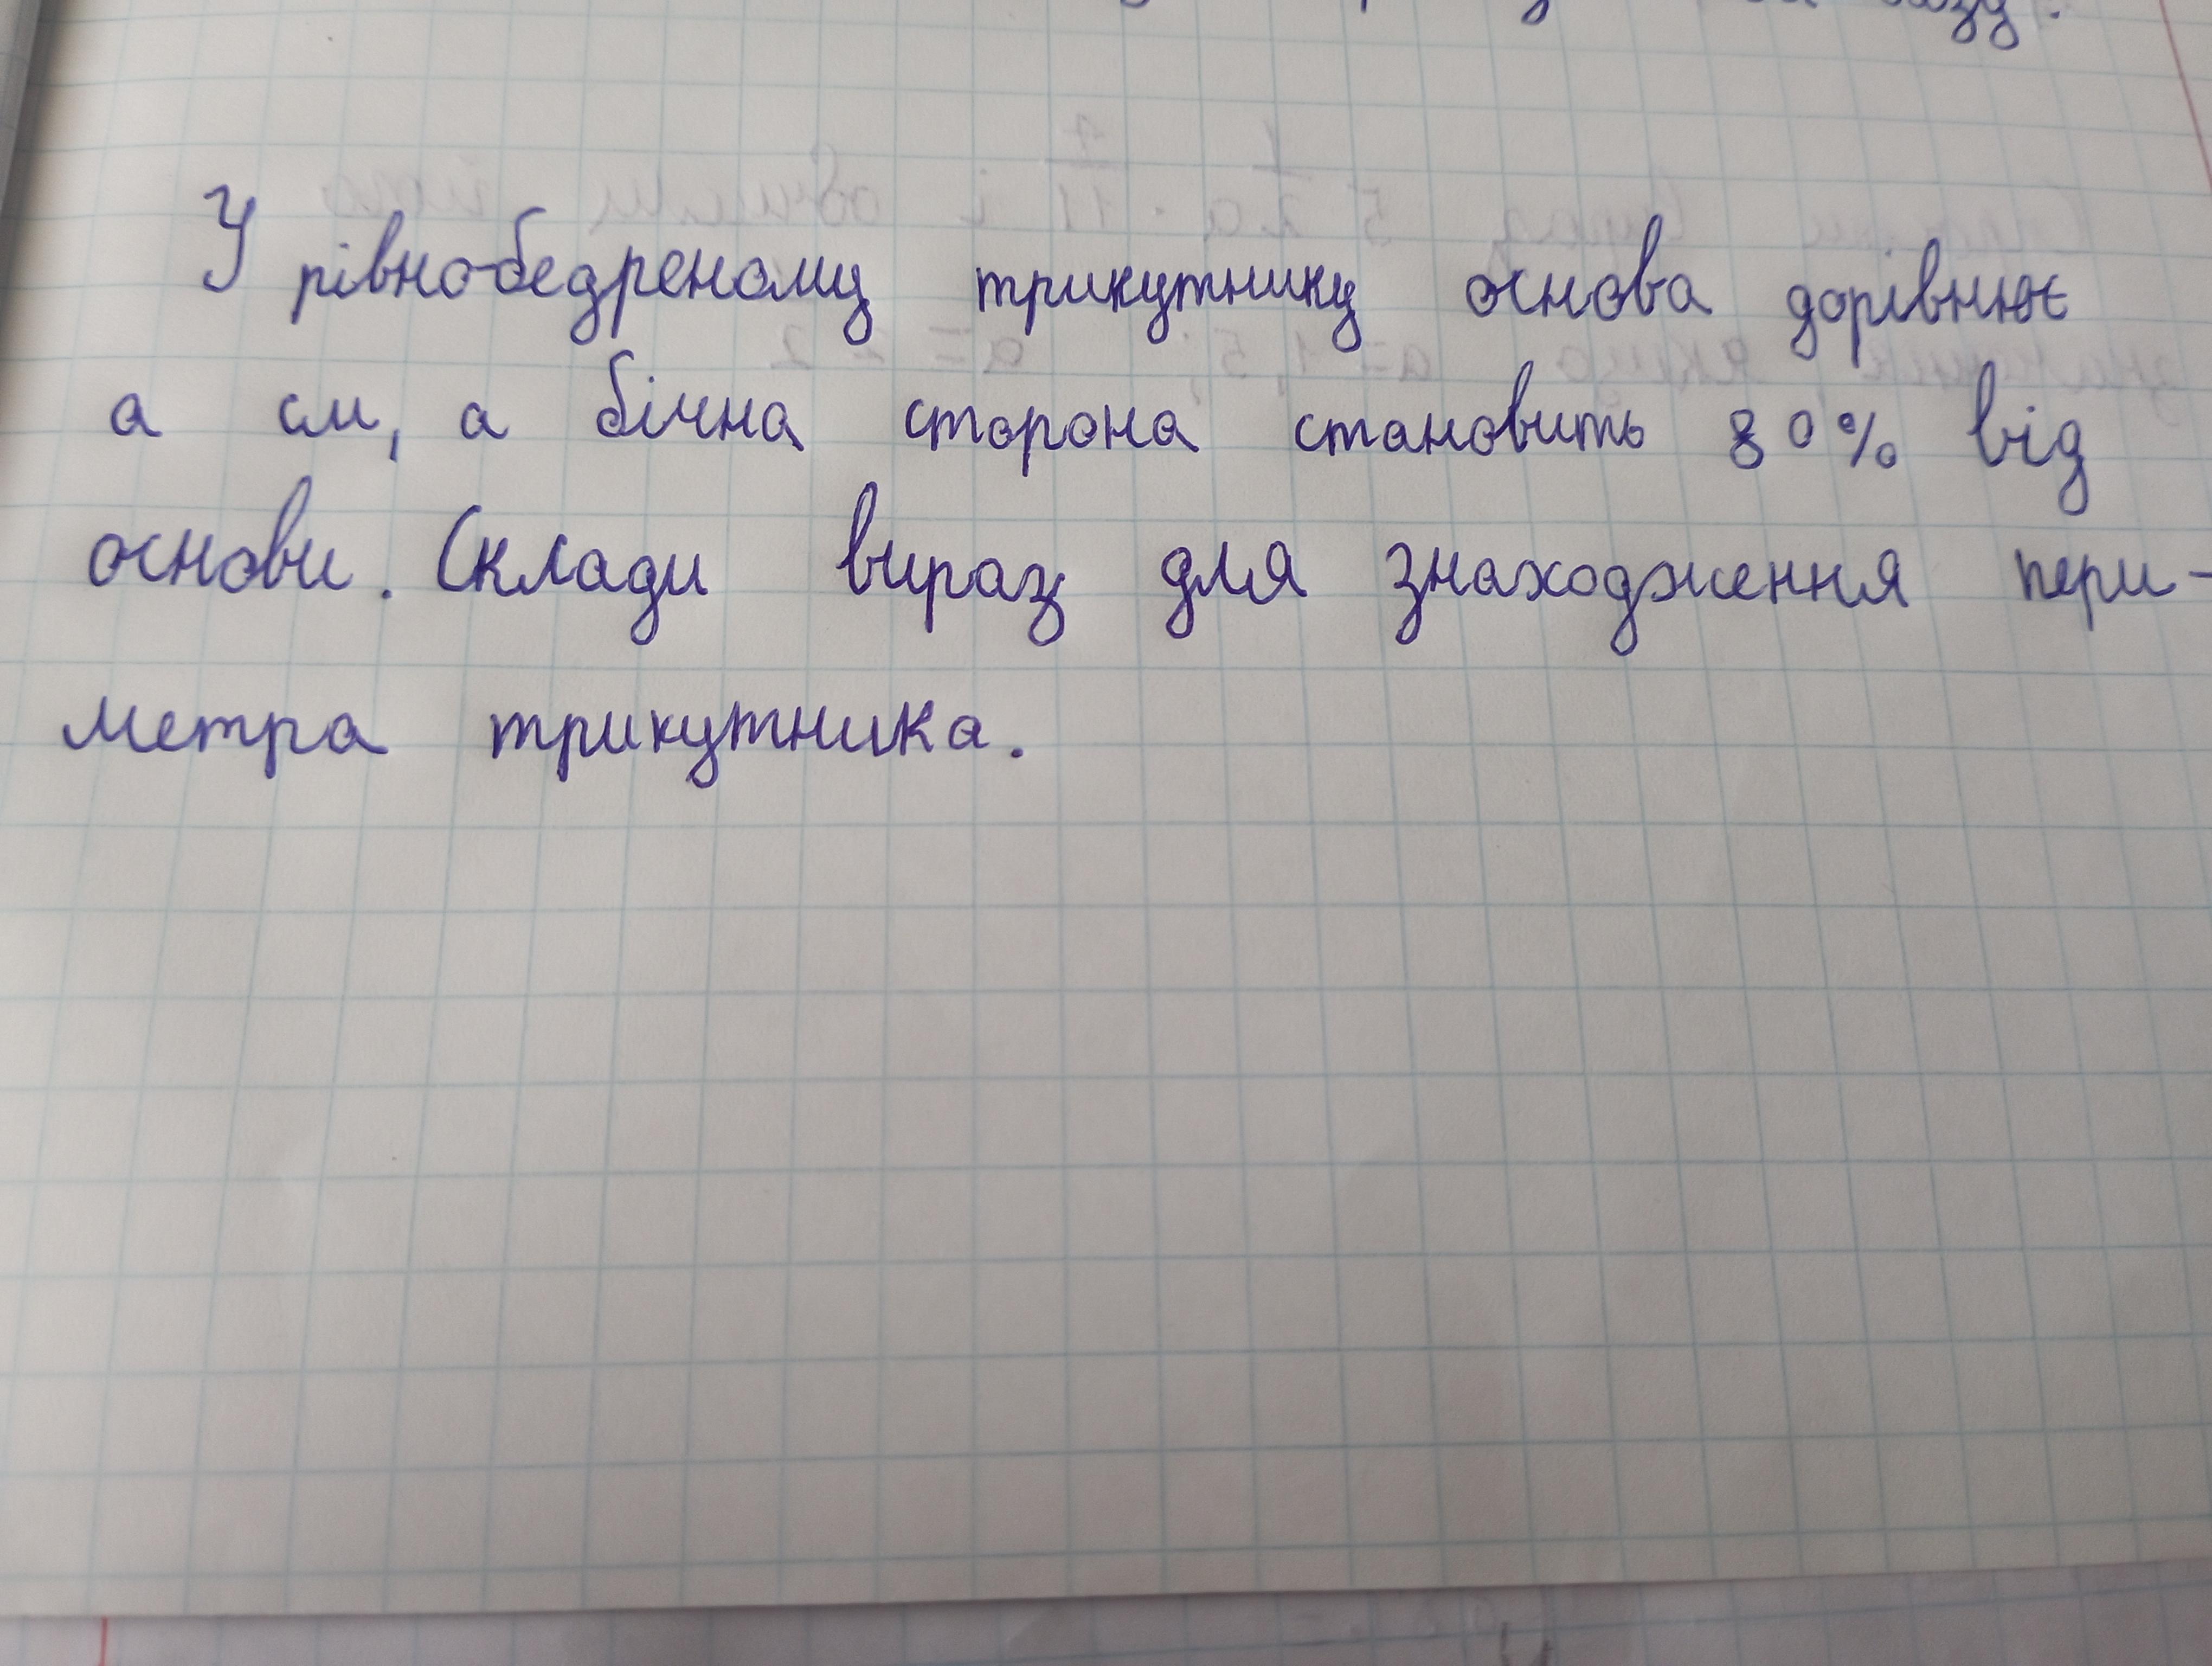 У рівнобедреному трикутнику основа дорівнює
а см, а бічна сторона становить 80% від
основи. Склади вираз для знаходження пери-
метра трикутника.